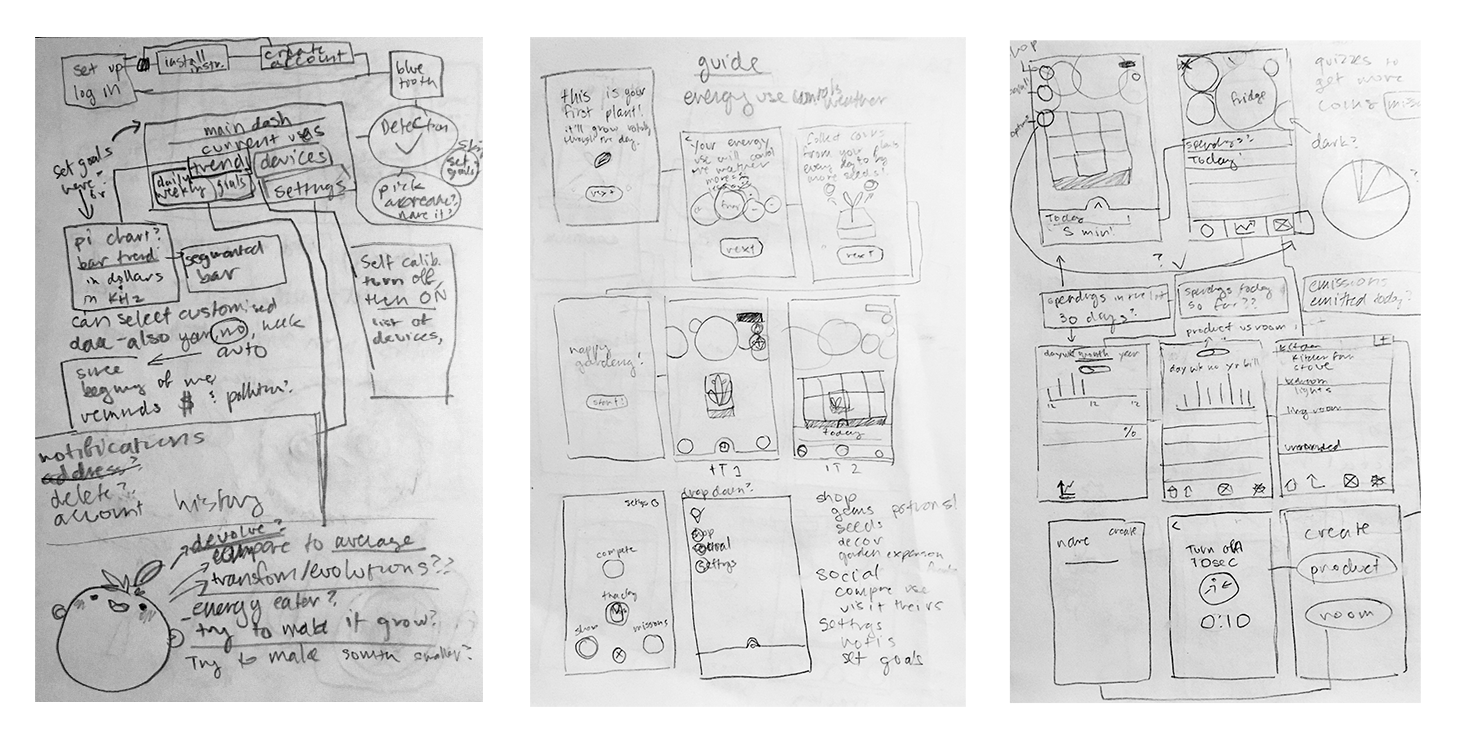 set up
log in
install
instr.
create
account
blue
tooth
main dash
current uses
trend
devices
daily
weekly
goals
settings
Detection
set
goals
pick
name it?
set goals
pi chart?
bar trend
in dollars
in KHz
segmented
bar
Self calib.
turn off,
then ON
list of
devices,
can select customised
date - also year, mo, week
auto
since
of me
reminds $ ? pollution?
notifications
address?
delete?
account
history
devolve?
compare to average
transform/evolutions??
energy eater?
try to make it grow?
Try to make smaller?
guide
energy use controls
weather
this is your
first plant!
it'll grow
through the day.
next
Your energy
use will control
the weather
next
Collect coins
from your plants
every day to buy
more seeds!
next
happy
gardening!
start!
today
1T 1
1T 2
compete
missions
drop down?
shop
social
settings
shop
gems potions!
seeds
decor
garden expansion
social
compare use
visit theirs
settings
notifs
set goals
fridge
quizzes to
get more
coins
dark?
spendings?
Today:
Today
5 min!
?
spendings in the last
30 days?
spendings today
so far??
emissions
emitted today?
product vs room
day wk month year
12
12
12
%
day wk mo yr bill
kitchen
+
kitchen fan
stove
bedroom
lights
living room
name
create
Turn off
10sec
0:10
create
product
room